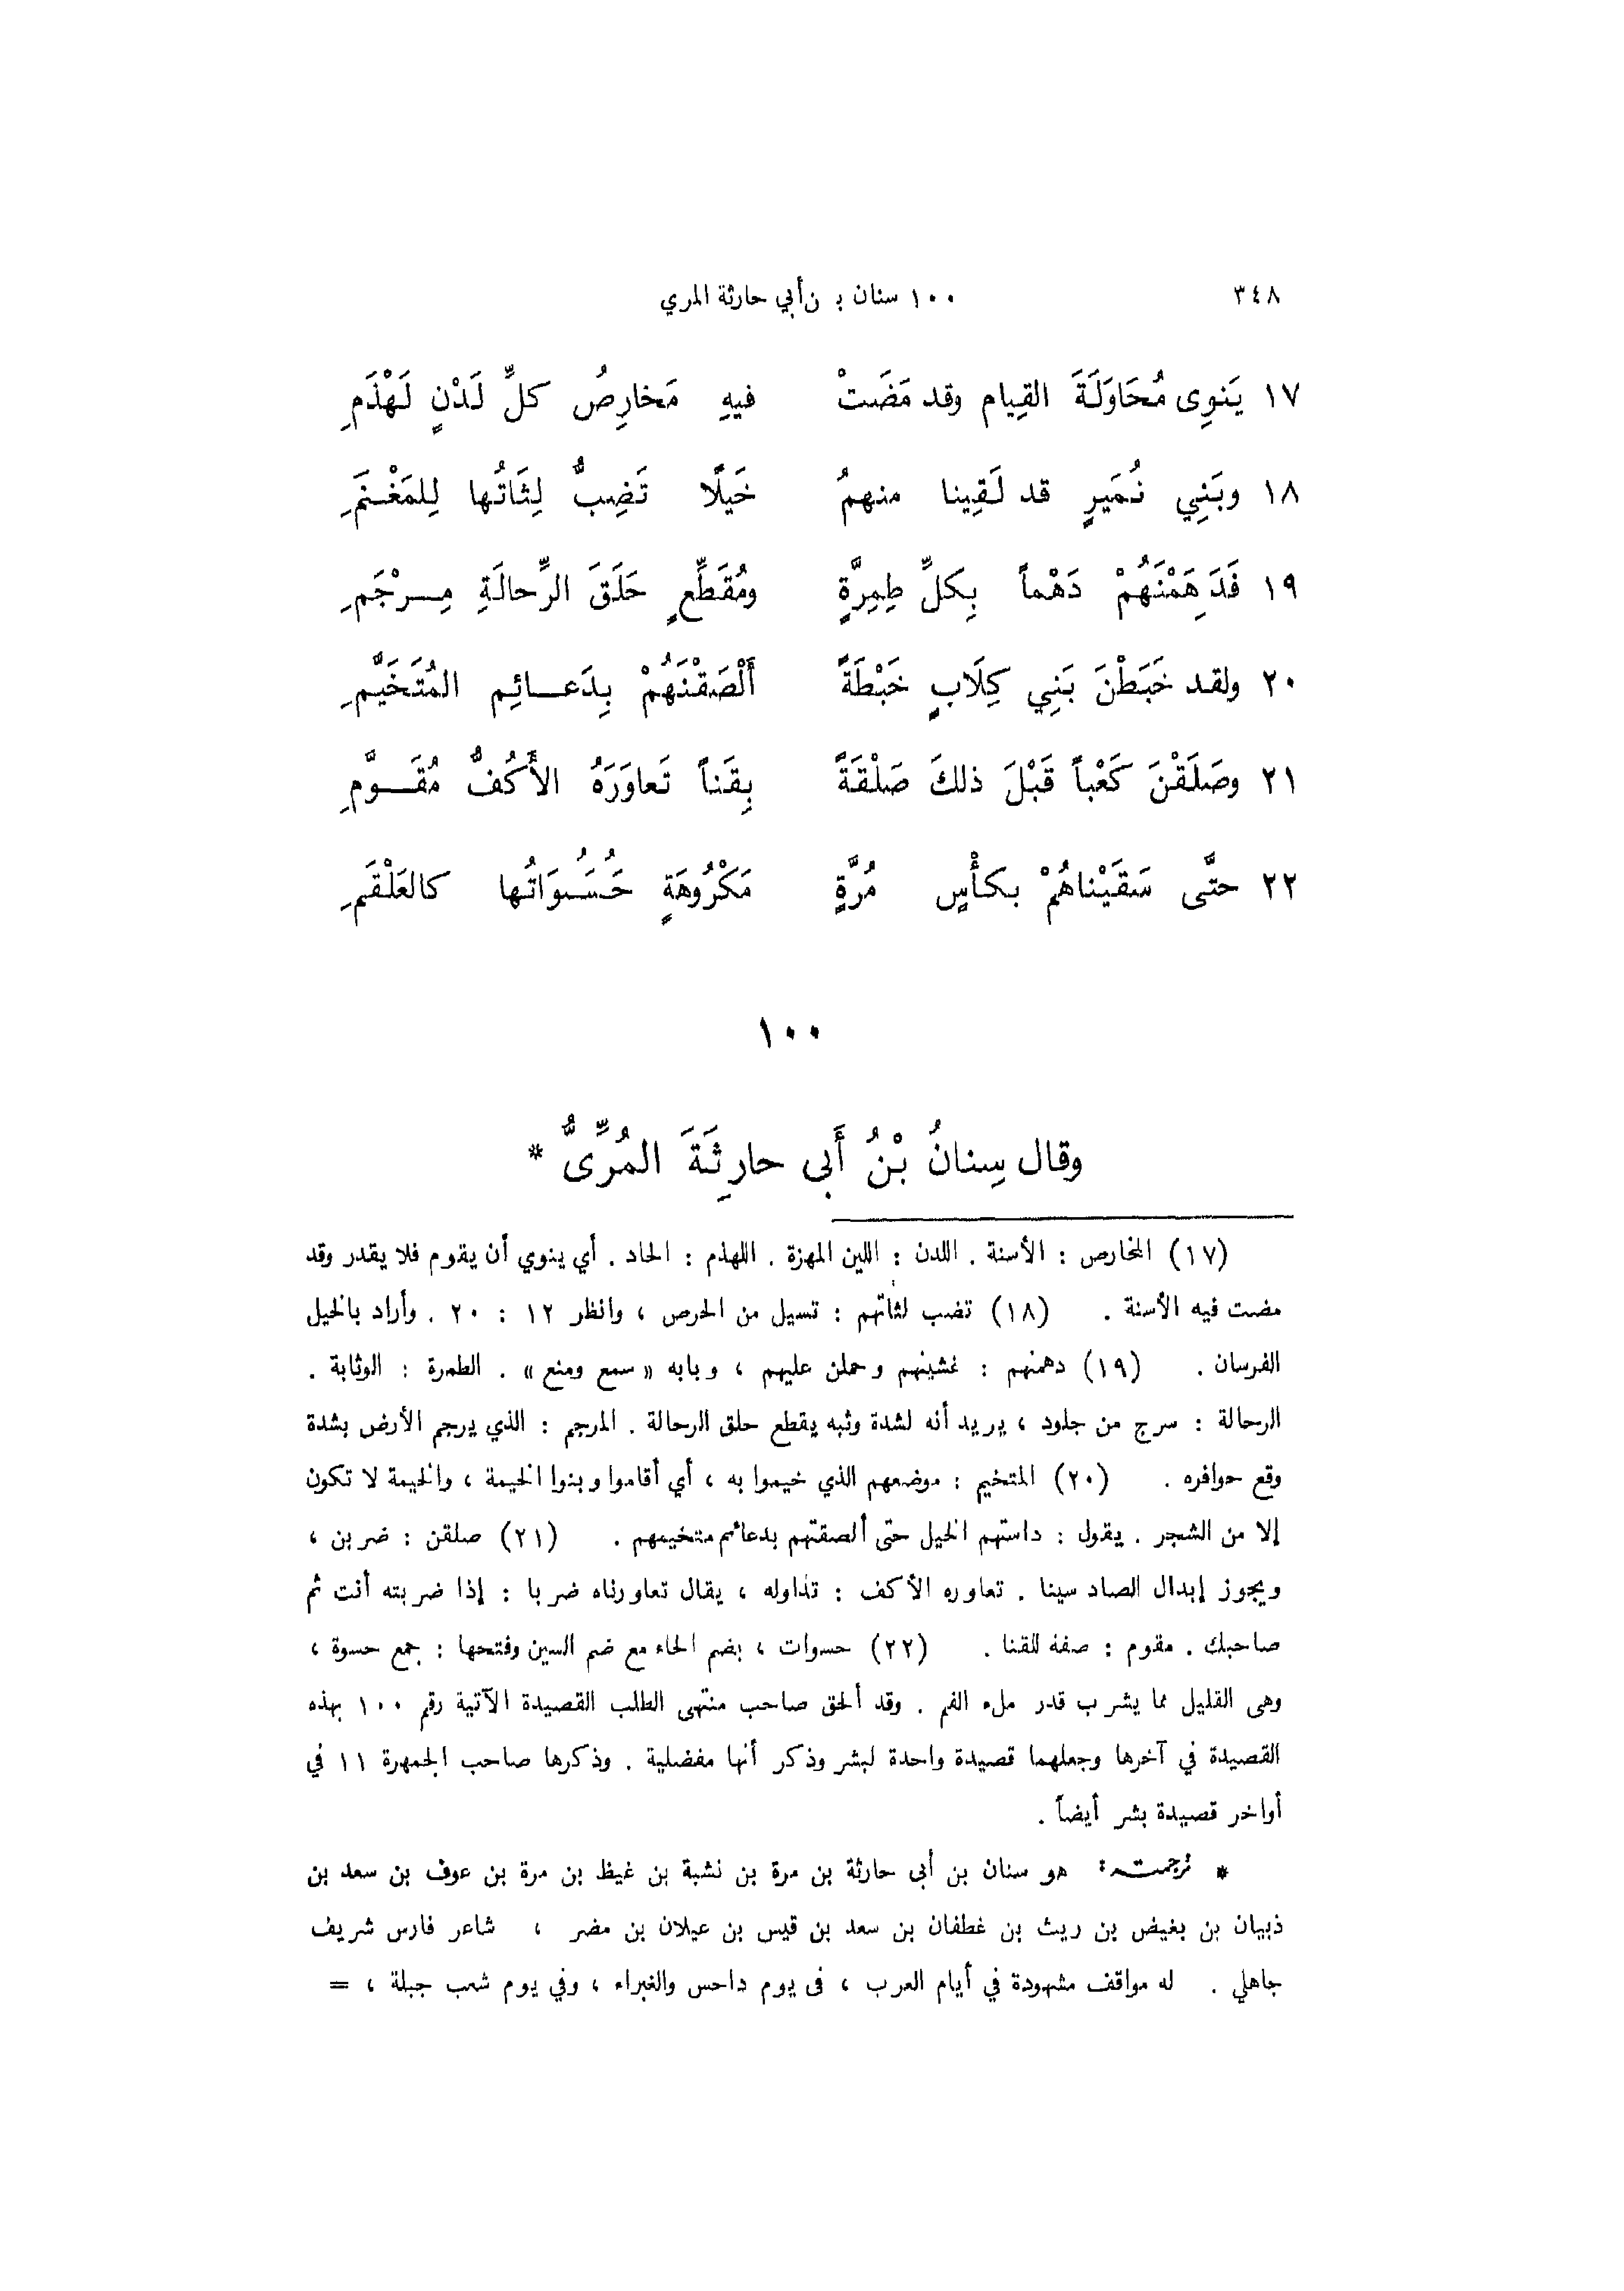 ٣٤٨ ١٠٠ سنان بن أبي حارثة المري
١٧ يَنوِى مُحَاوَلَةَ القِيام وقد مَضَتْ فيهِ مَخارِصُ كلِّ لَدْنٍ لَهْذَمِ
١٨ وبَنِي نُمَيرٍ قد لَقِينا منهمُ خَيلًا تَضِبُّ لِثَاتُها لِلمَغْنَمِ
١٩ فَدَهِمْنَهُمْ دَهْماً بِكلِّ طِمِرَّةٍ ومُقَطِّعٍ حَلَقَ الرِّحالَةِ مِرْجَمِ
٢٠ ولقد خَبَطْنَ بَنِي كِلَابٍ خَبْطَةً أَلْصَقْنَهُمْ بِدَعائِم المُتَخَيَّمِ
٢١ وصَلَقْنَ كَعْباً قَبْلَ ذلكَ صَلْقَةً بِقَناً تَعاوَرَهُ الأَكُفُّ مُقَوَّمِ
٢٢ حتَّى سَقَيْناهُمْ بكأْسٍ مُرَّةٍ مَكْرُوهَةٍ حُسُوَاتُها كالعَلْقَمِ
١٠٠
وقال سِنانُ بْنُ أَبى حارِثَةَ المُرِّىُّ *
(١٧) المخارص : الأسنة . اللدن : اللين المهزة . اللهذم : الحاد . أي ينوي أن يقوم فلا يقدر وقد
مضت فيه الأسنة . (١٨) تضب لثاتهم : تسيل من الحرص ، وانظر ١٢ : ٢٠ . وأراد بالخيل
الفرسان . (١٩) دهمنهم : غشينهم وحملن عليهم ، وبابه « سمع ومنع » . الطمرة : الوثابة .
الرحالة : سرج من جلود ، يريد أنه لشدة وثبه يقطع حلق الرحالة . المرجم : الذي يرجم الأرض بشدة
وقع حوافره . (٢٠) المتخيم : موضعهم الذي خيموا به ، أي أقاموا وبنوا الخيمة ، والخيمة لا تكون
إلا من الشجر . يقول : داستهم الخيل حتى ألصقتهم بدعائم متخيمهم . (٢١) صلقن : ضربن ،
ويجوز إبدال الصاد سينا . تعاوره الأكف : تداوله ، يقال تعاورناه ضربا : إذا ضربته أنت ثم
صاحبك . مقوم : صفة للقنا . (٢٢) حسوات ، بضم الحاء مع ضم السين وفتحها : جمع حسوة ،
وهى القليل مما يشرب قدر ملء الفم . وقد ألحق صاحب منتهى الطلب القصيدة الآتية رقم ١٠٠ بهذه
القصيدة في آخرها وجعلهما قصيدة واحدة لبشر وذكر أنها مفضلية . وذكرها صاحب الجمهرة ١١ في
أواخر قصيدة بشر أيضاً .
* ترجمته: هو سنان بن أبى حارثة بن مرة بن نشبة بن غيظ بن مرة بن عوف بن سعد بن
ذبيان بن بغيض بن ريث بن غطفان بن سعد بن قيس بن عيلان بن مضر ، شاعر فارس شريف
جاهلي . له مواقف مشهودة في أيام العرب ، فى يوم داحس والغبراء ، وفي يوم شعب جبلة ، =